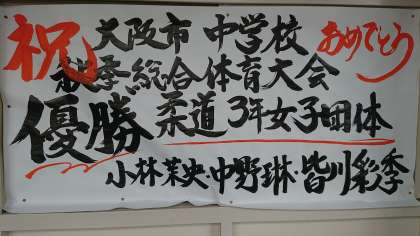 祝 大阪市 中学校 おめでとう
秋季総合体育大会
優勝 柔道 3年女子団体
小林茉央・中野琳・皆川彩季